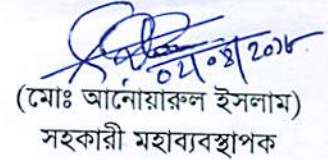 02/08/2018
(মোঃ আনোয়ারুল ইসলাম)
সহকারী মহাব্যবস্থাপক